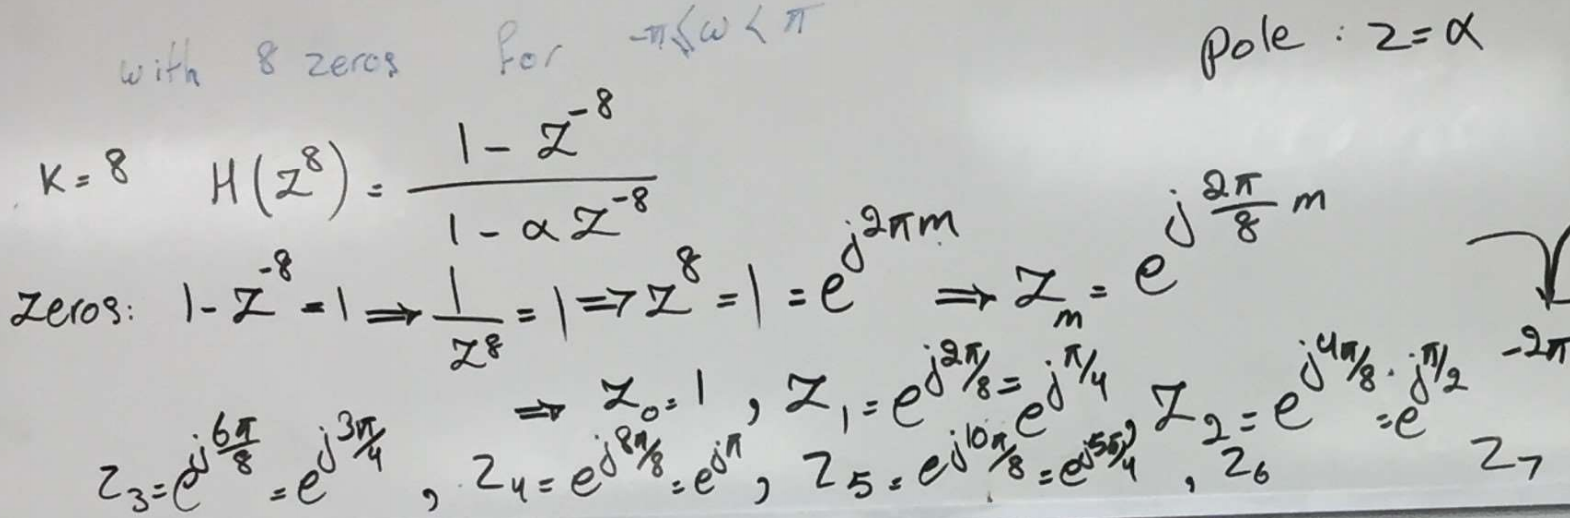 with 8 zeros for -π≤ω<π
Pole : z=α
K=8 H(z⁸) = (1 - z⁻⁸)/(1 - αz⁻⁸)
Zeros: 1-z⁻⁸=1 ⇒ 1/z⁸ = 1 ⇒ z⁸ = 1 = e^{j2πm} ⇒ z_m = e^{j(2π/8)m}
⇒ z₀=1, z₁ = e^{j2π/8} = e^{jπ/4}, z₂ = e^{j4π/8} = e^{jπ/2} -2π
z₃ = e^{j6π/8} = e^{j3π/4}, z₄ = e^{j8π/8} = e^{jπ}, z₅ = e^{j10π/8} = e^{j5π/4}, z₆ z₇